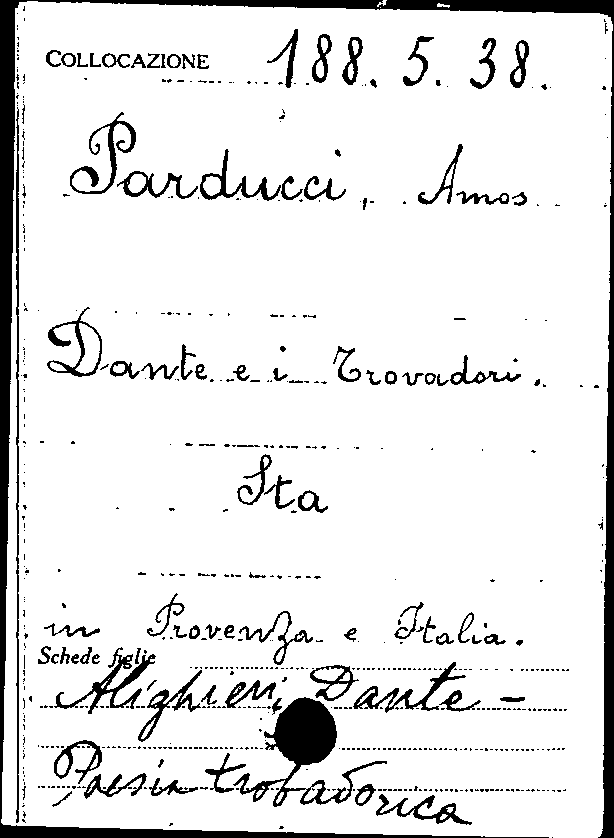 COLLOCAZIONE 188. 5. 38.
Parducci, Amos
Dante e i Trovadori.
Sta
in Provenza e Italia.
Schede figlie
Alighieri, Dante -
Poesia trobadorica